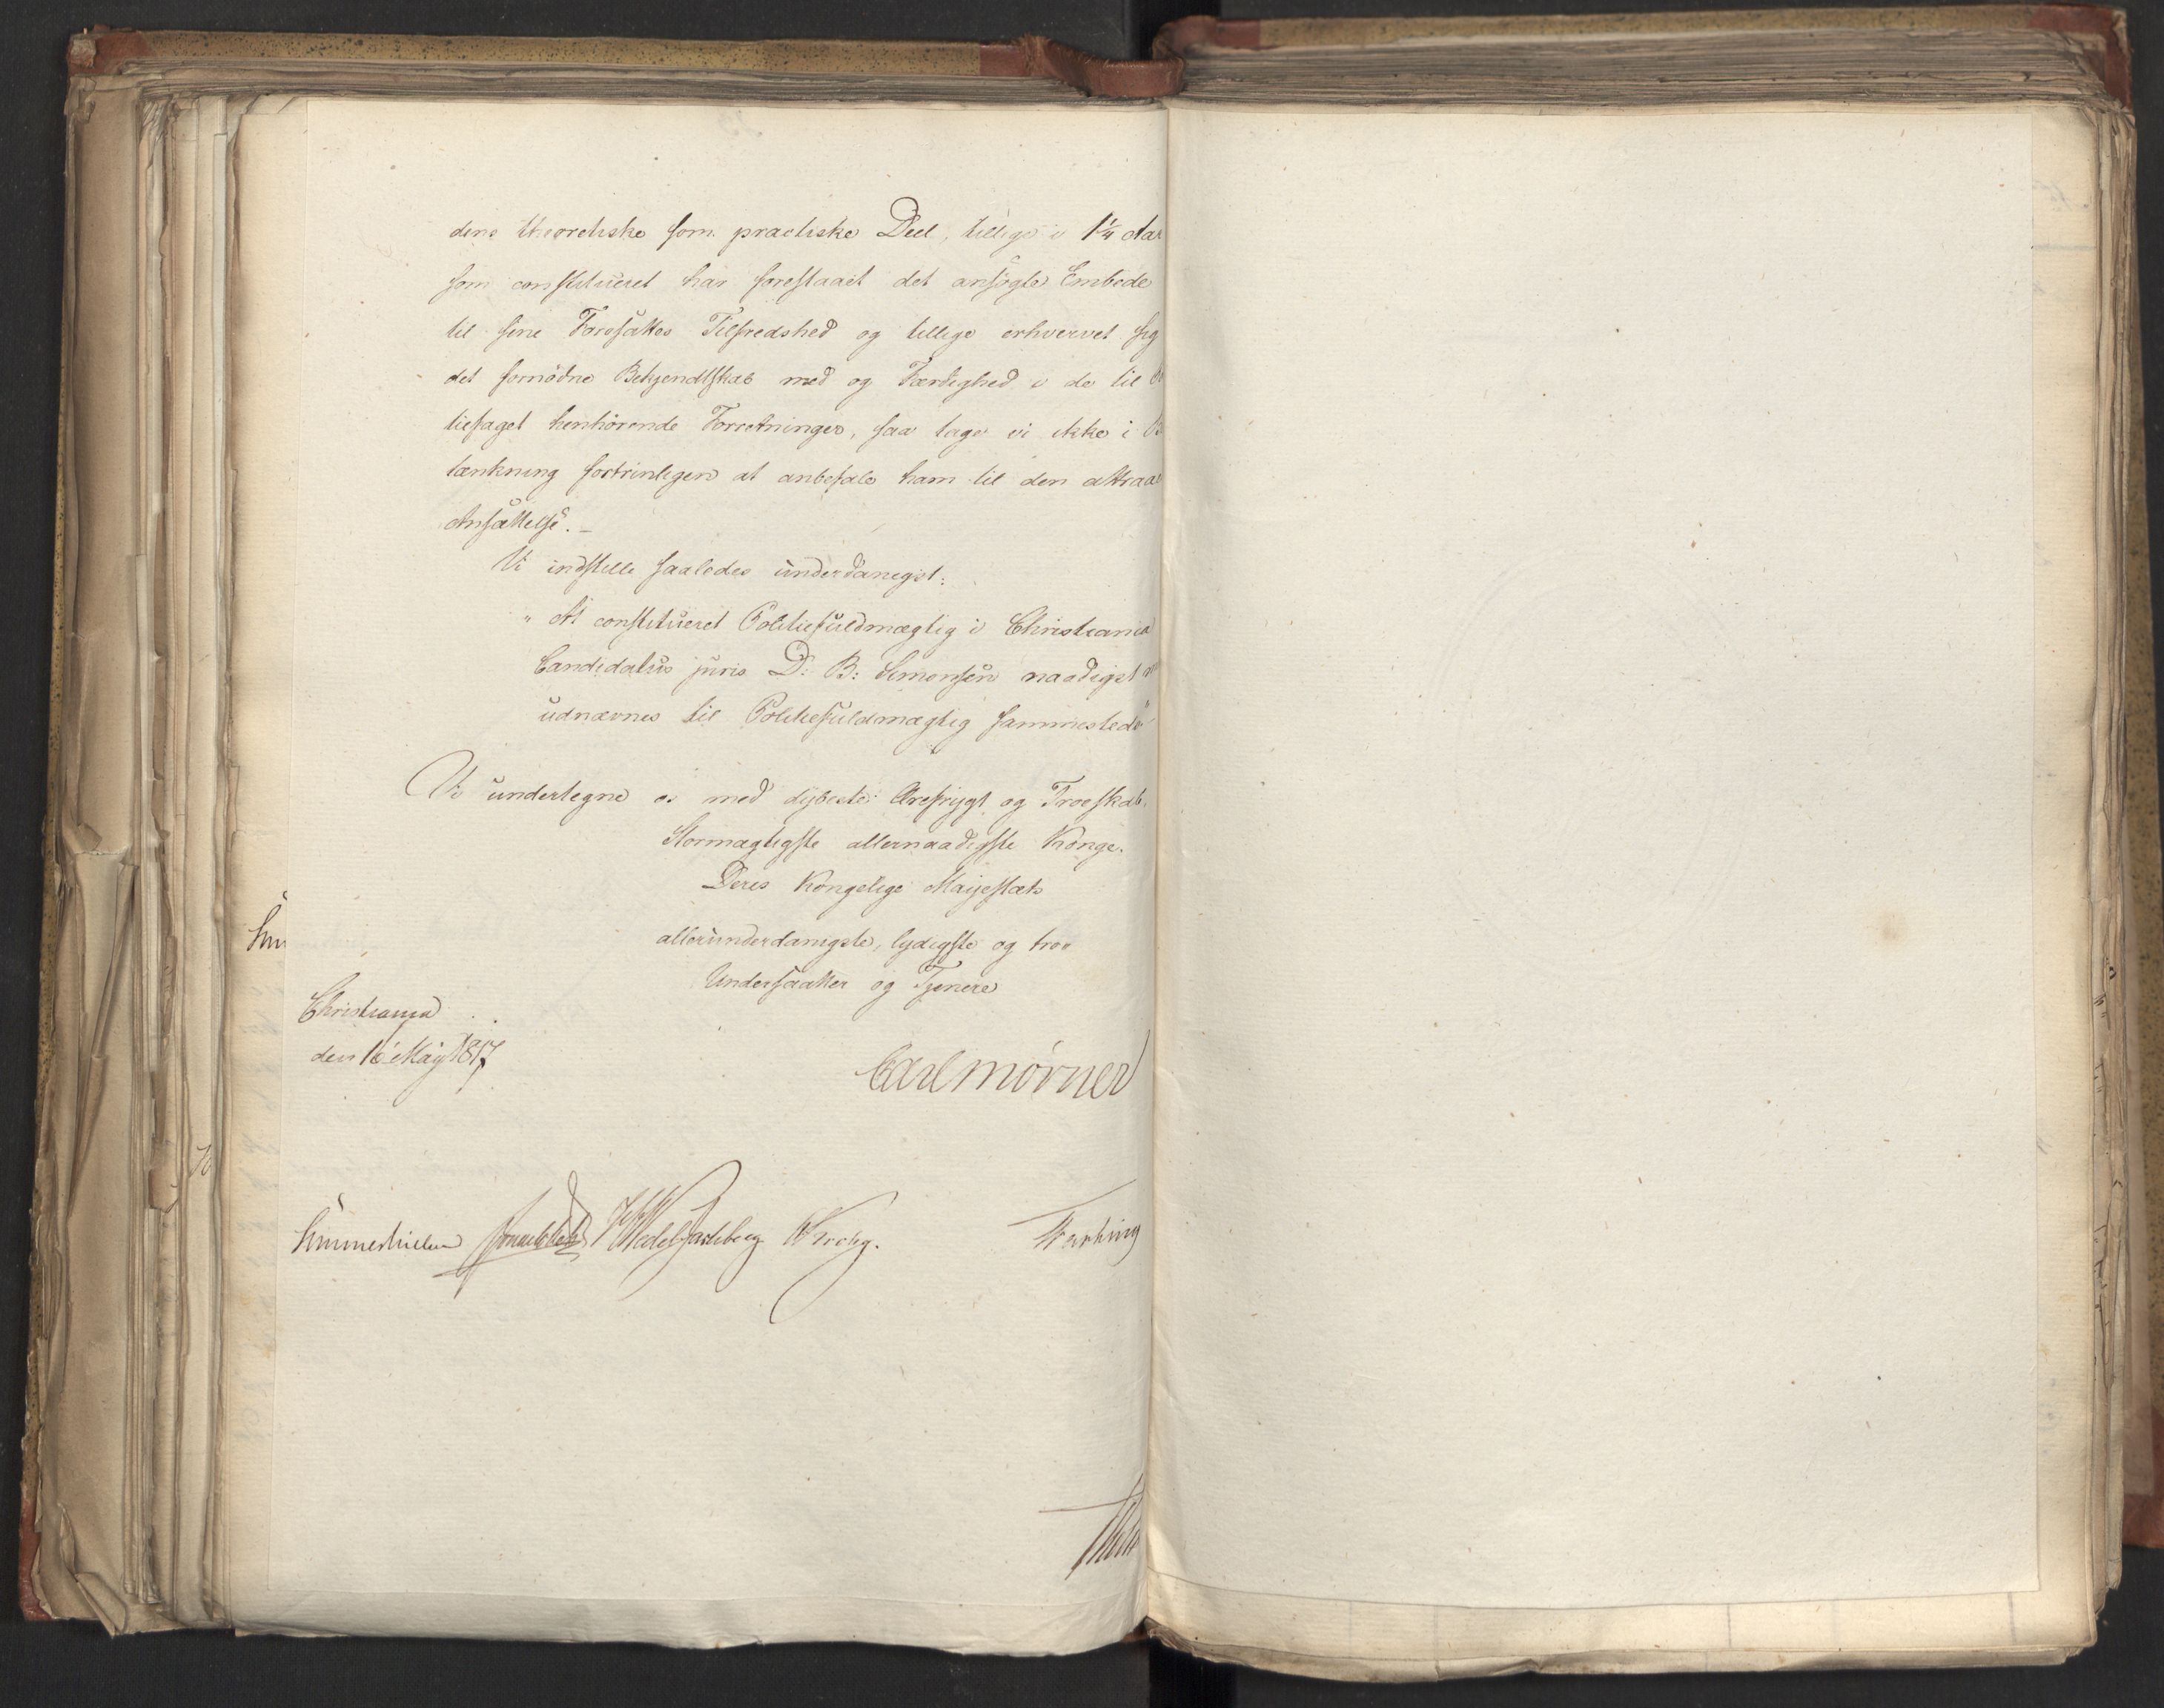 dens theoretiske som practiske Deel, tillige i 1¼ Aar
som constitueret har forestaaet det ansögte Embede
til sine Foresattes Tilfredshed og tillige erhvervet sig
det fornödne Bekjendtskab med og Færdighed i de til Po
liefaget henhörende Forretninger, saa tage vi ikke i Be
tænkning fortrinligen at anbefale ham til den attraae
Ansættelse. –
Vi indstille saaledes underdanigst:
" At constitueret Politiefuldmægtig i Christiania
Candidatus juris D: B: Simonsen naadigst
udnævnes til Politiefuldmægtig sammesteds"
Vi undertegne os med dybeste Ærefrygt og Troeskab,
Stormægtigste allernaadigste Konge.
Deres Kongelige Majestæts
allerunderdanigste, lydigste og troe
Undersaatter og Tjenere
Christiania
den 16 May 1817
Carl Mörner
Sommerhielm Wedel Jarlsberg Krohg.